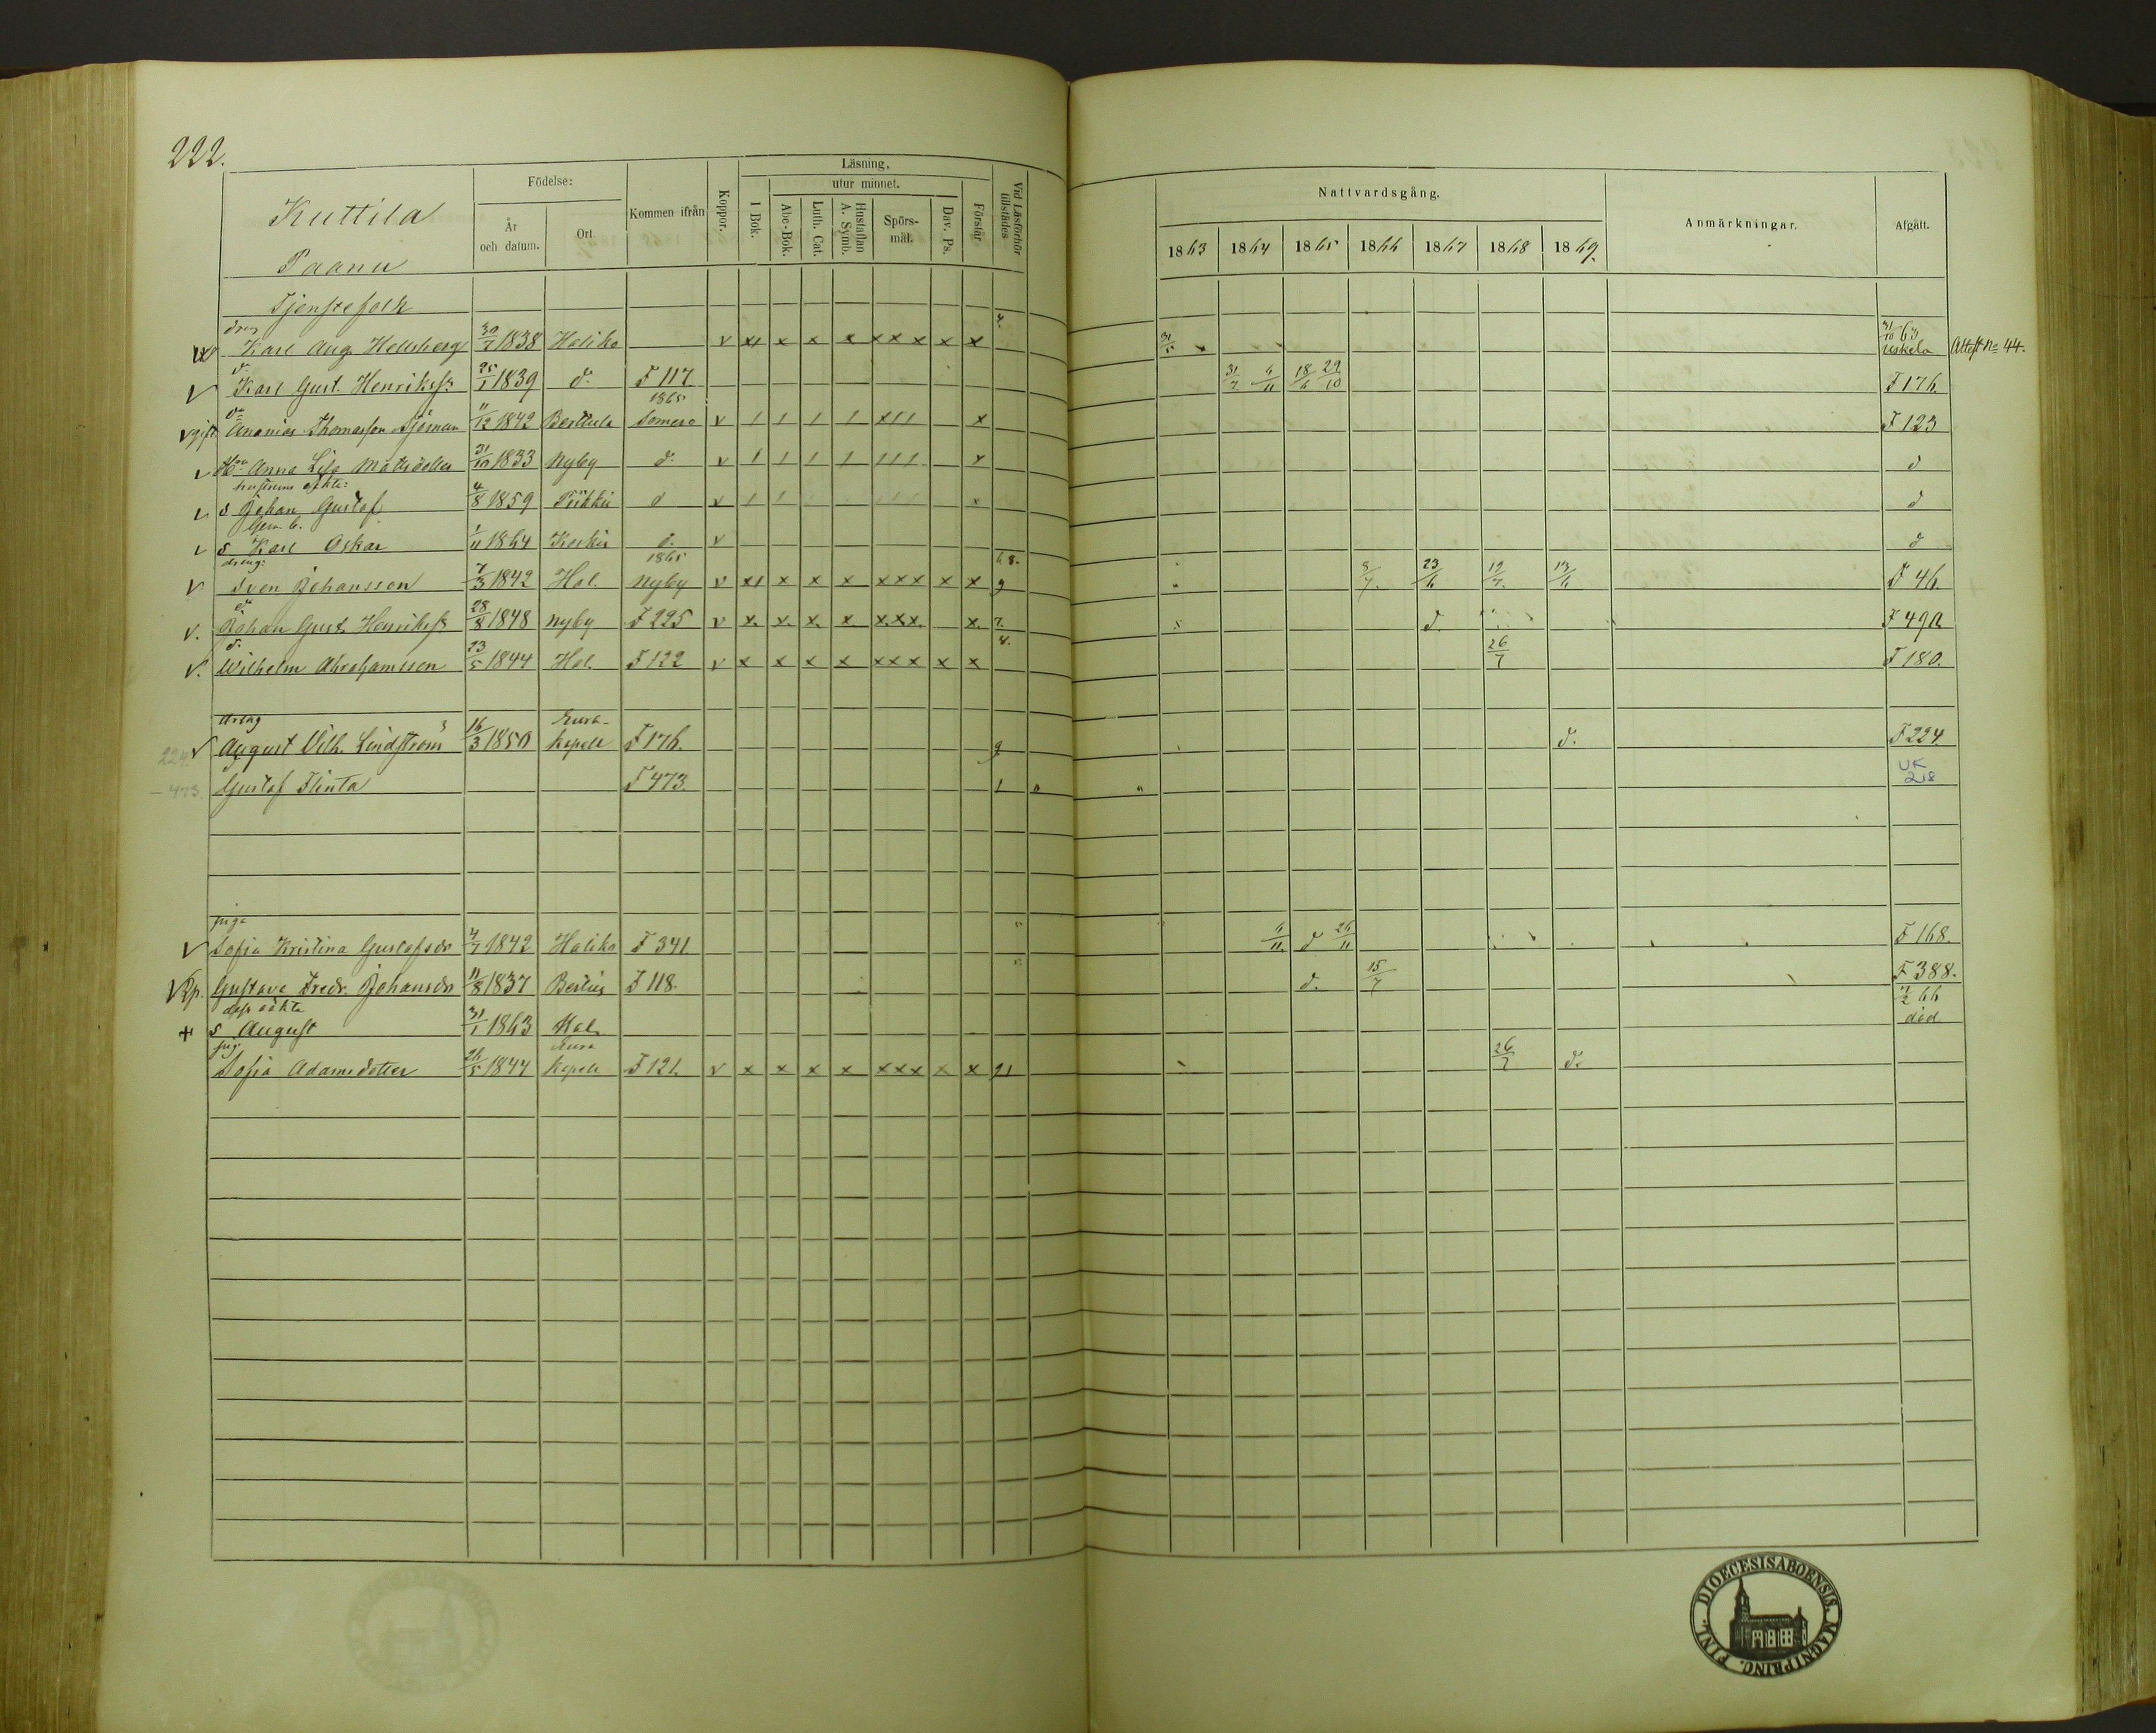 222.
Kuttila
Paanu
Födelse:
År och datum.
Ort
Kommen ifrån
Koppor.
Läsning,
utur minnet.
I Bok.
Abc-Bok.
Luth. Cat.
Hustaflan A. Symb.
Spörs-mål.
Dav. Ps.
Förstår
Vid Läsförhör tillstädes
Nattvardsgång.
1863 1864 1865 1866 1867 1868 1869.
Anmärkningar.
Afgått.
Tjenstefolk
dreng
Karl Aug. Hellsberg 30/7 1838 Haliko v x x x x x x x x 4. 31/5 31/10 63 Uskela Attest No 44.
d:
v Karl Gust. Henrikss: 25/1 1839 do F 117 31/7 6/11 18/6 29/10 F 176.
do 1865
v gift Ananias Thomasson Sjöman 11/12 1842 Bertula Somero v 1 1 1 1 x11 x F 123
v Hu Anna Lisa Matsdotter 31/10 1833 Nyby d: v 1 1 1 1 111 x d
hustruns oäkta:
v s Johan Gustaf 4/8 1859 Piikkis d v 1 1 d
Gem. b.
v s Karl Oskar 1/11 1864 Koskis d. v d
dreng: 1865 68.
v Sven Johansson 7/3 1842 Hal. Nyby v x x x x xxx x x 9 8/7. 23/6 12/7. 13/6 F 46.
do
v. Johan Gust. Henrikss: 28/8 1848 Nyby F 225 v x. x. x. x x.x.x. x. 7. d. F 490
d: 4.
v. Wilhelm Abrahamsson 23/5 1844 Hal. F 122 v x x x x xxx x x 26/7 F 180.
dreng Kuus-
224. v August Vilh. Lindström 16/3 1850 kapell F 176. 9 d. F 224
- 473. Gustaf Flinta F 473. 1 UK 218
piga
v Sofia Kristina Gustafsdr 4/7 1842 Haliko F 341. 6/11. d 26/11 F 168.
v Kp. Gustava Fredr. Johansdr 11/8 1837 Bertus F 118. d. 15/7 F 388.
dess oäkta
+ s August 31/1 1863 Hal. 7/2 66 död
pig. Kuus
Sofia Adamsdotter 26/5 1844 kapell F 121. v x x x x xxx x x 91 26/7 d.
DIOECESIS ABOENSIS. MAGNI PRINC. FINL.